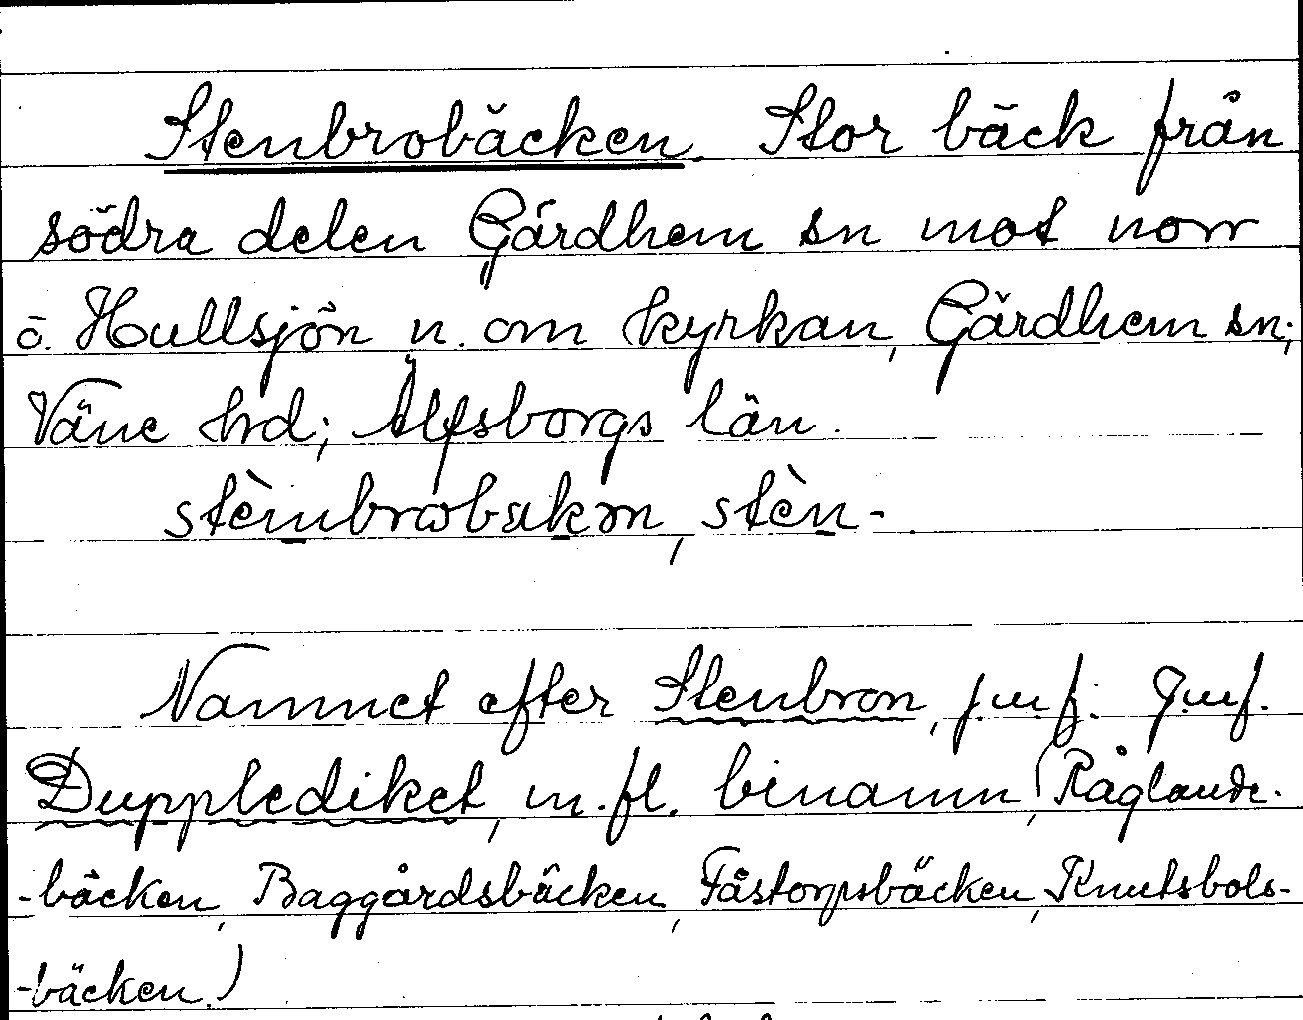 Stenbrobäcken. Stor bäck från
södra delen Gärdhem sn mot norr
ö. Hullsjön n. om kyrkan, Gärdhem sn;
Väne hrd; Älfsborgs län.
stèmbrobakən, stèn-.
Namnet efter Stenbron, j.m.f. Jmf.
Dupplediket, m.fl. binamn, (Råglande-
-bäcken, Baggårdsbäcken, Fåstorpsbäcken, Knutsbols-
-bäcken.)